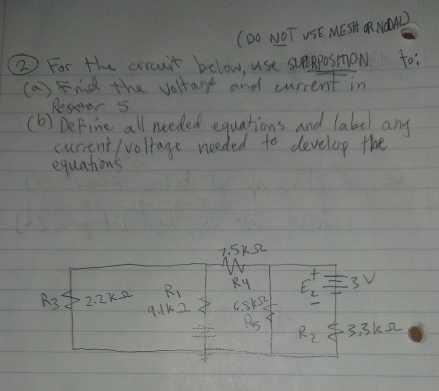 (DO NOT USE MESH OR NODAL)
② For the circuit below, use SUPERPOSITION to:
(a) Find the voltage and current in
Resistor 5
(b) Define all needed equations and label any
current/voltage needed to develop the
equations
7.5kΩ
R4
R3 2.2kΩ
R1
9.1kΩ
6.8kΩ
R5
+
E2 3V
-
R2 3.3kΩ